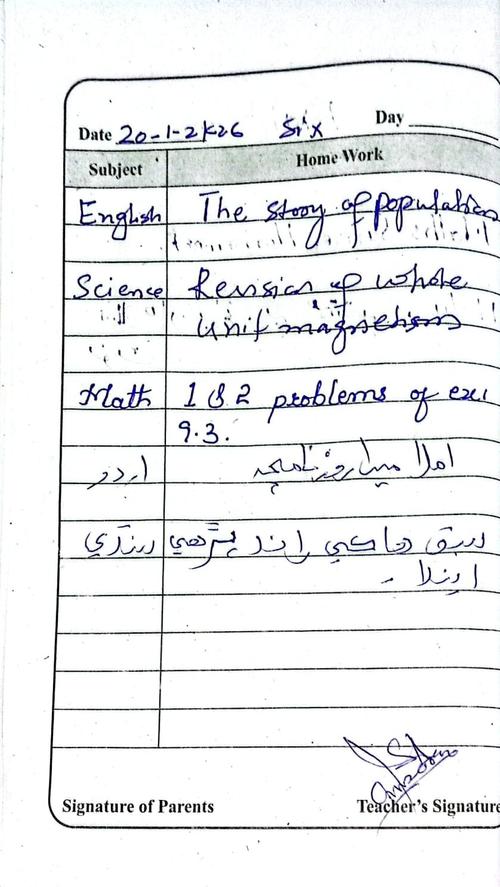 Date 20-1-2k26 Six Day
Subject Home Work
English The story of population
Science Revision of whole
Unit magnetism
Math 1 & 2 problems of exe
9.3.
اردو املا میرا روزنامچہ
سنڌي سبق هاڪي راند پڙهي
اينلا -
Signature of Parents Teacher's Signature